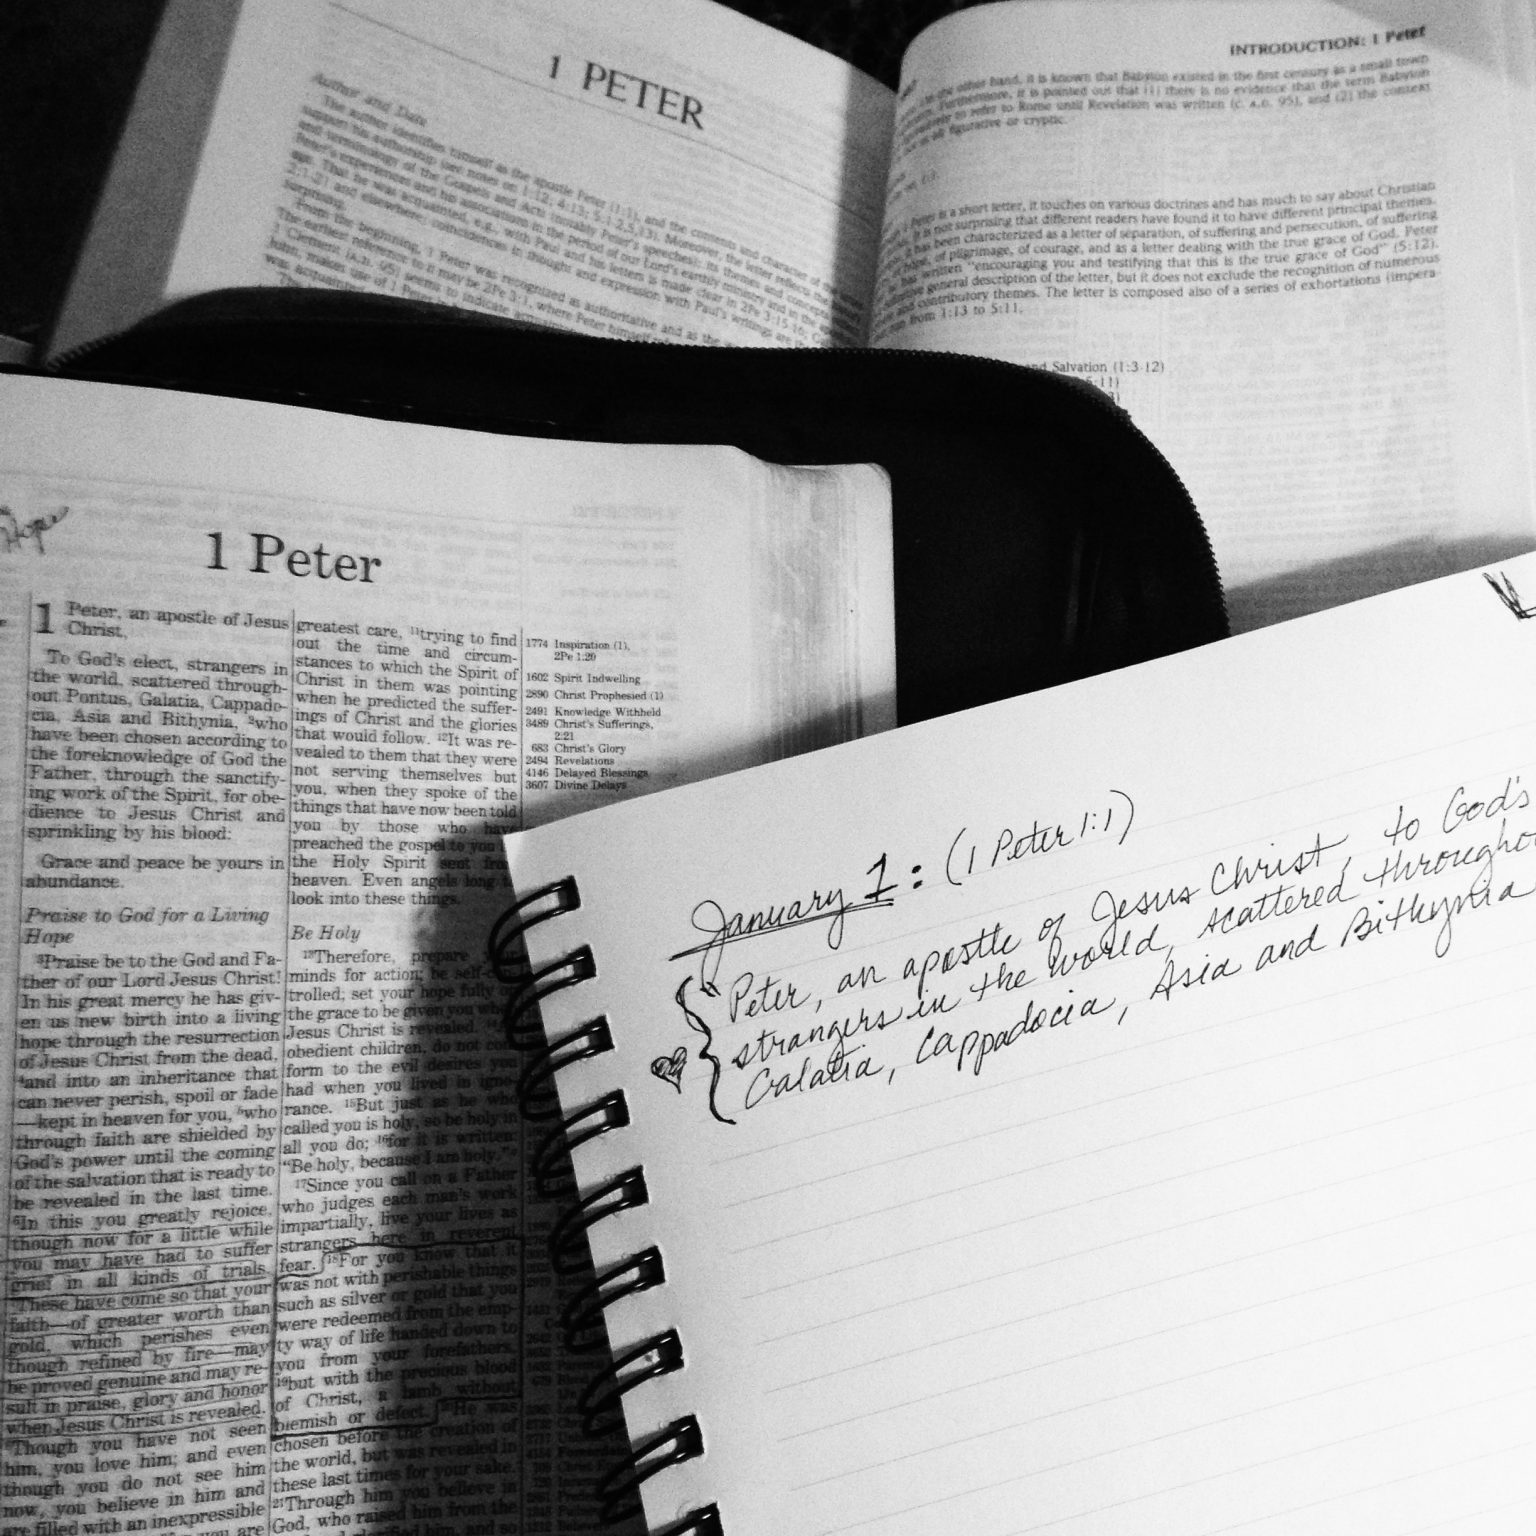 1 PETER
Author and Date
The author identifies himself as the apostle Peter (1:1), and the contents and character of
support his authorship (see notes on 1:12; 4:13; 5:1-2,5,13). Moreover, the letter reflects the
and terminology of the Gospels and Acts (notably Peter's speeches). Its themes and concepts
Peter's experiences and his associations in the period of our Lord's earthly ministry and in the
age. That he was acquainted, e.g., with Paul and his letters is made clear in 2Pe 3:15-16; Gal
2:1-21 and elsewhere; coincidences in thought and expression with Paul's writings are
surprising.
From the beginning, 1 Peter was recognized as authoritative and as the
The earliest reference to it may be 2Pe 3:1, where Peter himself
1 Clement (A.D. 95) seems to indicate
makes use of 1 Peter
INTRODUCTION: 1 Peter
other hand, it is known that Babylon existed in the first century as a small town
Furthermore, it is pointed out that (1) there is no evidence that the term Babylon
to refer to Rome until Revelation was written (c. A.D. 95), and (2) the context
at all figurative or cryptic.
Peter is a short letter, it touches on various doctrines and has much to say about Christian
It is not surprising that different readers have found it to have different principal themes.
has been characterized as a letter of separation, of suffering and persecution, of suffering
hope, of pilgrimage, of courage, and as a letter dealing with the true grace of God. Peter
has written "encouraging you and testifying that this is the true grace of God" (5:12).
general description of the letter, but it does not exclude the recognition of numerous
and contributory themes. The letter is composed also of a series of exhortations (impera-
from 1:13 to 5:11.
and Salvation (1:3-12)
5:11)
Hope
1 Peter
1 Peter, an apostle of Jesus
Christ,
To God's elect, strangers in
the world, scattered through-
out Pontus, Galatia, Cappado-
cia, Asia and Bithynia, ²who
have been chosen according to
the foreknowledge of God the
Father, through the sanctify-
ing work of the Spirit, for obe-
dience to Jesus Christ and
sprinkling by his blood:
Grace and peace be yours in
abundance.
Praise to God for a Living
Hope
³Praise be to the God and Fa-
ther of our Lord Jesus Christ!
In his great mercy he has giv-
en us new birth into a living
hope through the resurrection
of Jesus Christ from the dead,
⁴and into an inheritance that
can never perish, spoil or fade
—kept in heaven for you, ⁵who
through faith are shielded by
God's power until the coming
of the salvation that is ready to
be revealed in the last time.
⁶In this you greatly rejoice,
though now for a little while
you may have had to suffer
grief in all kinds of trials.
⁷These have come so that your
faith—of greater worth than
gold, which perishes even
though refined by fire—may
be proved genuine and may re-
sult in praise, glory and honor
when Jesus Christ is revealed.
⁸Though you have not seen
him, you love him; and even
though you do not see him
now, you believe in him and
are filled with an inexpressible
you are
greatest care, ¹¹trying to find
out the time and circum-
stances to which the Spirit of
Christ in them was pointing
when he predicted the suffer-
ings of Christ and the glories
that would follow. ¹²It was re-
vealed to them that they were
not serving themselves but
you, when they spoke of the
things that have now been told
you by those who have
preached the gospel to you
the Holy Spirit sent from
heaven. Even angels long to
look into these things.
Be Holy
¹³Therefore, prepare your
minds for action; be self-con-
trolled; set your hope fully on
the grace to be given you when
Jesus Christ is revealed.
obedient children, do not con-
form to the evil desires you
had when you lived in igno-
rance. ¹⁵But just as he who
called you is holy, so be holy in
all you do; ¹⁶for it is written:
"Be holy, because I am holy."
¹⁷Since you call on a Father
who judges each man's work
impartially, live your lives as
strangers here in reverent
fear. ¹⁸For you know that it
was not with perishable things
such as silver or gold that you
were redeemed from the emp-
ty way of life handed down to
you from your forefathers,
¹⁹but with the precious blood
of Christ, a lamb without
blemish or defect. ²⁰He was
chosen before the creation of
the world, but was revealed in
these last times for your sake.
²¹Through him you believe in
God, who raised him from the
glorified him, and so
1774 Inspiration (1),
2Pe 1:20
1602 Spirit Indwelling
2890 Christ Prophesied (1)
2491 Knowledge Withheld
3489 Christ's Sufferings,
2:21
683 Christ's Glory
2494 Revelations
4146 Delayed Blessings
3607 Divine Delays
January 1: (1 Peter 1:1)
"Peter, an apostle of Jesus Christ, to God's
strangers in the world, scattered througho
Galatia, Cappadocia, Asia and Bithynia